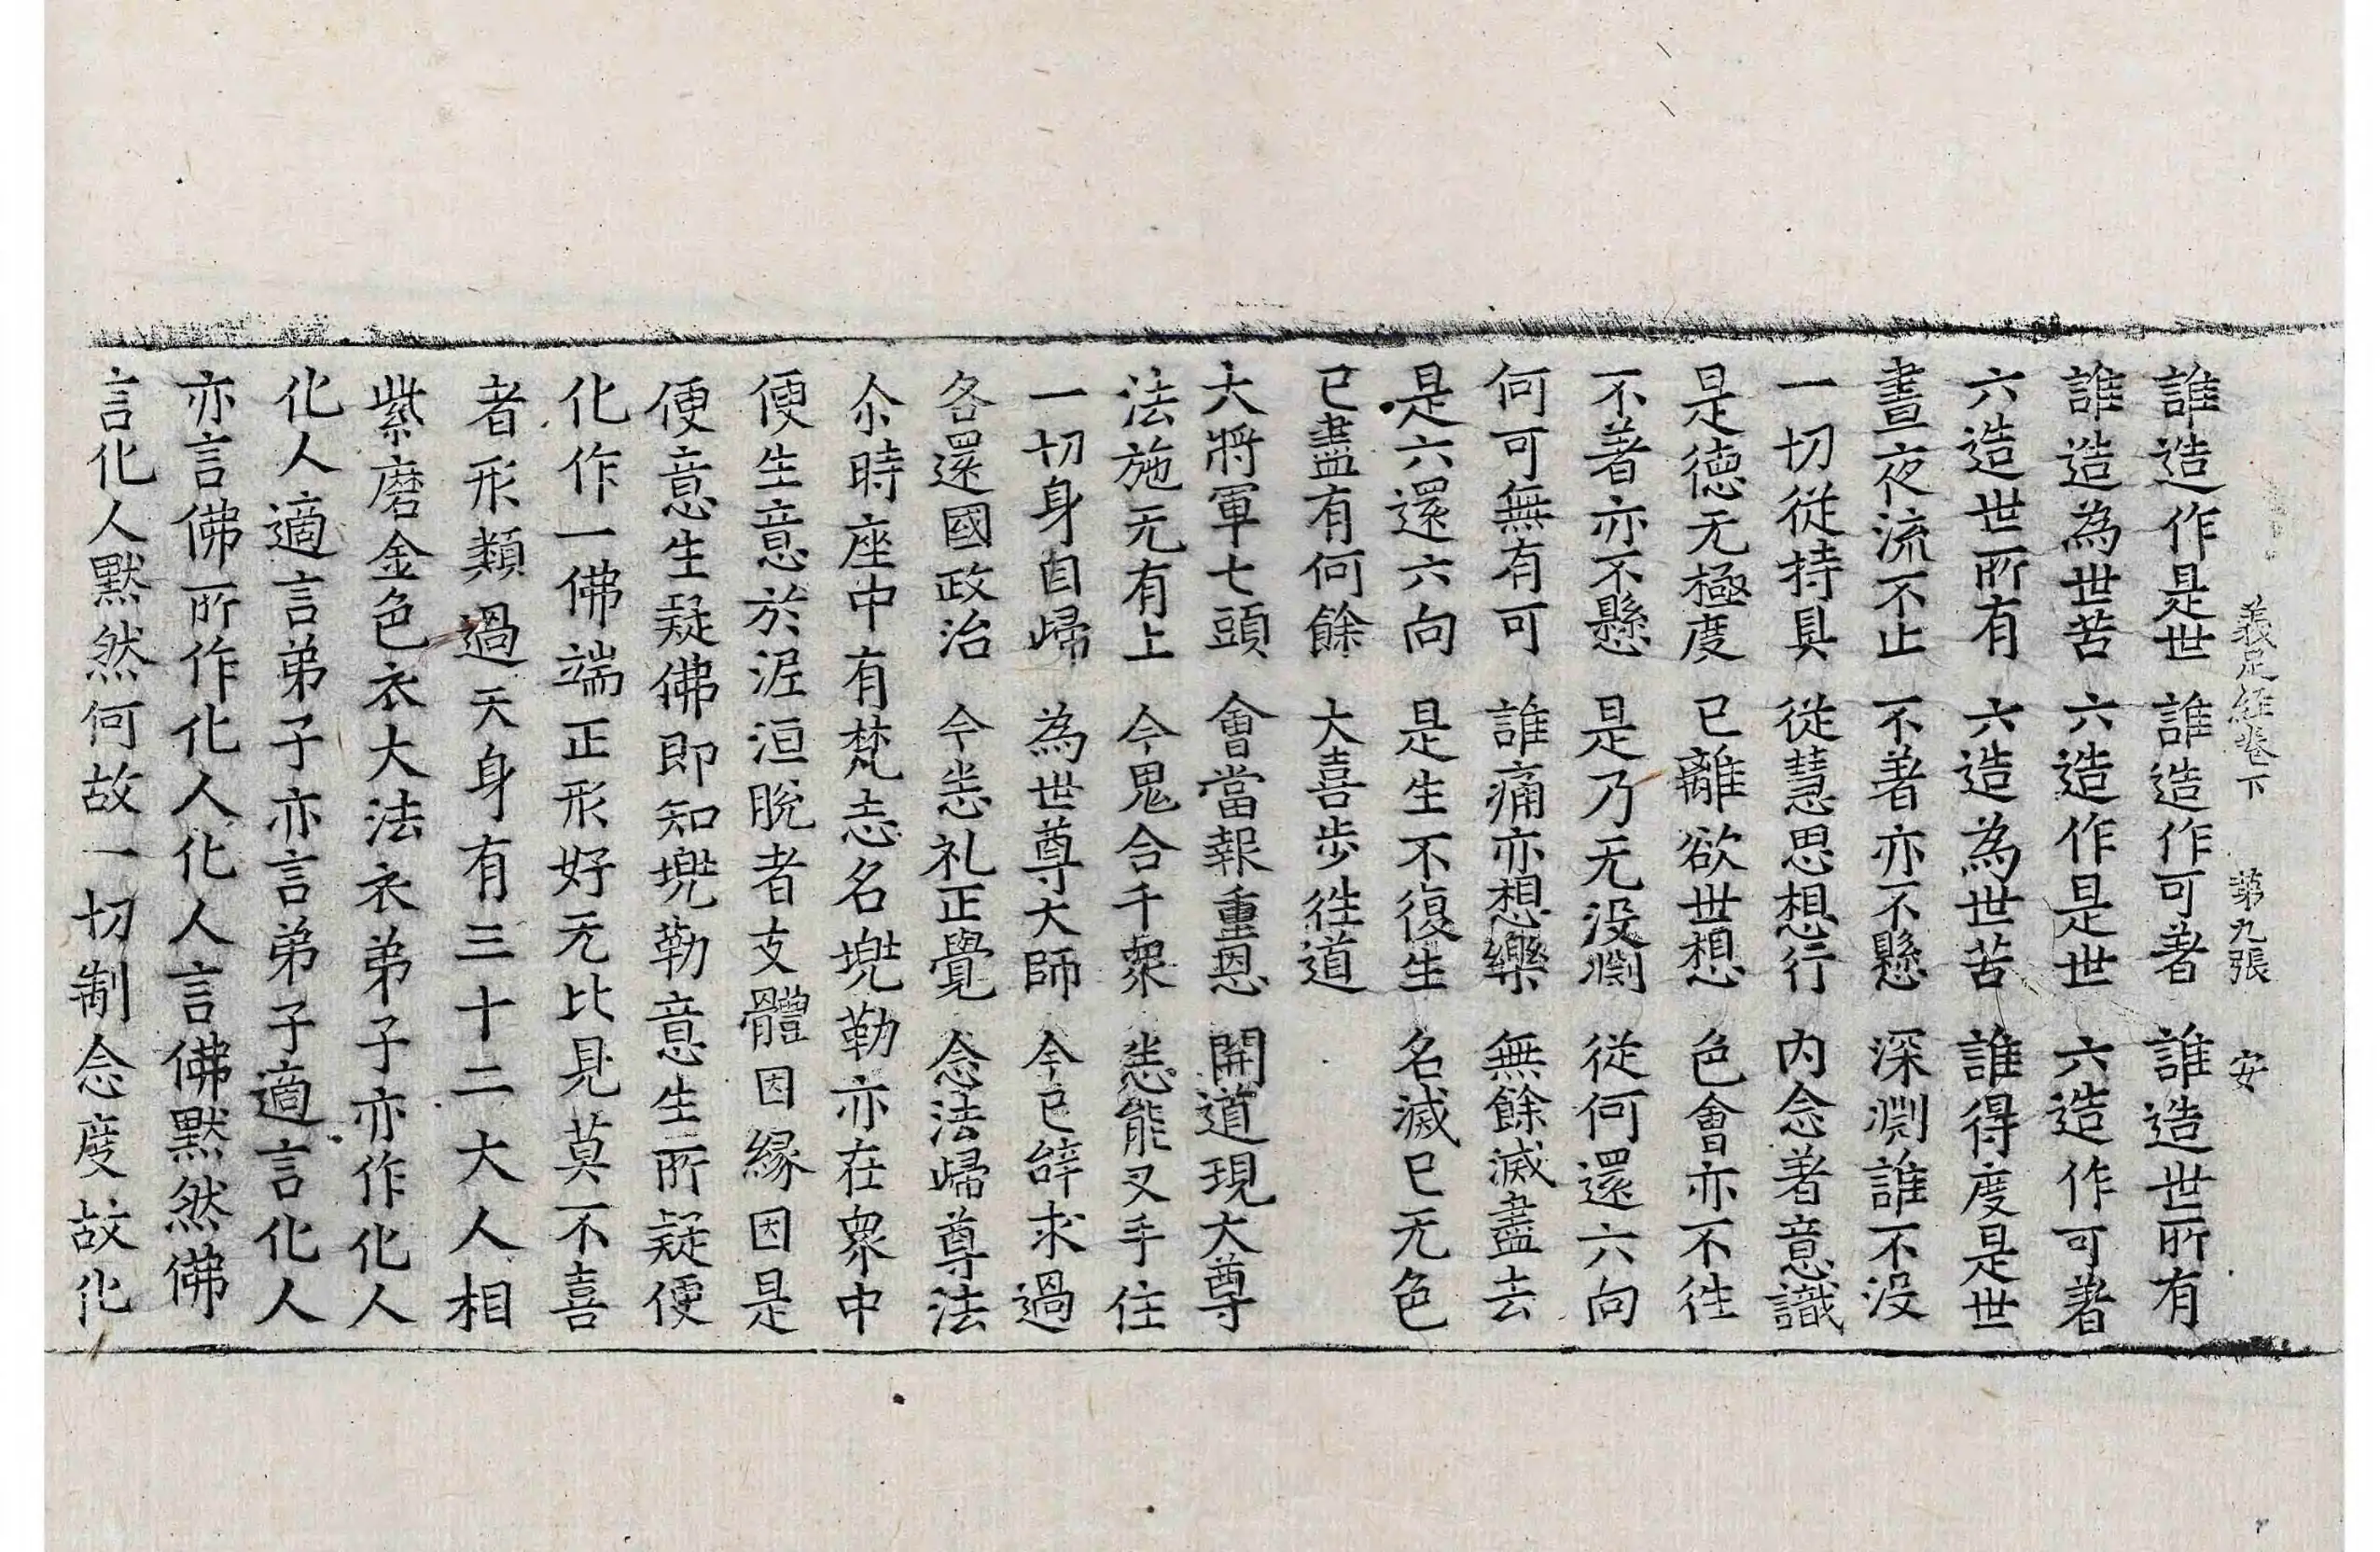 義足經卷下 第九張 安
誰造作是世 誰造作可著 誰造世所有
誰造為世苦 六造作是世 六造作可著
六造世所有 六造為世苦 誰得度是世
晝夜流不止 不著亦不懸 深渕誰不没
一切從持具 從慧思想行 内念著意識
是德无極度 已離欲世想 色會亦不徃
不著亦不懸 是乃无没渕 從何還六向
何可無有可 誰痛亦想樂 無餘滅盡去
是六還六向 是生不復生 名滅已无色
已盡有何餘 大喜步徃道
大將軍七頭 會當報重恩 開道現大尊
法施无有上 今鬼合千衆 悉能叉手住
一切身自歸 為世尊大師 今已辝求過
各還國政治 今悉礼正覺 念法歸尊法
尒時座中有梵志名㙯勒亦在衆中
便生意於泥洹脫者支體因緣因是
便意生疑佛即知㙯勒意生所疑便
化作一佛端正形好无比見莫不喜
者形類過天身有三十二大人相
紫磨金色衣大法衣弟子亦作化人
化人適言弟子亦言弟子適言化人
亦言佛所作化人化人言佛默然佛
言化人默然何故一切制念度故化